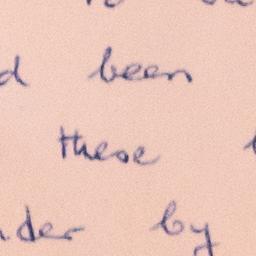 d been
these
nder by